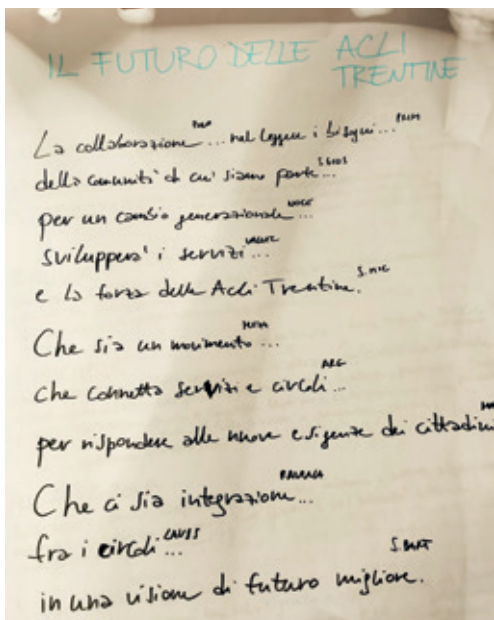 IL FUTURO DELLE ACLI
TRENTINE
La collaborazione... nel leggere i bisogni...
della comunità di cui siamo parte...
per un cambio generazionale...
svilupperà i servizi...
e la forza delle Acli Trentine.
Che sia un movimento...
che connetta servizi e circoli...
per rispondere alle nuove esigenze dei cittadini
Che ci sia integrazione...
fra i circoli...
S. MAT
in una visione di futuro migliore.